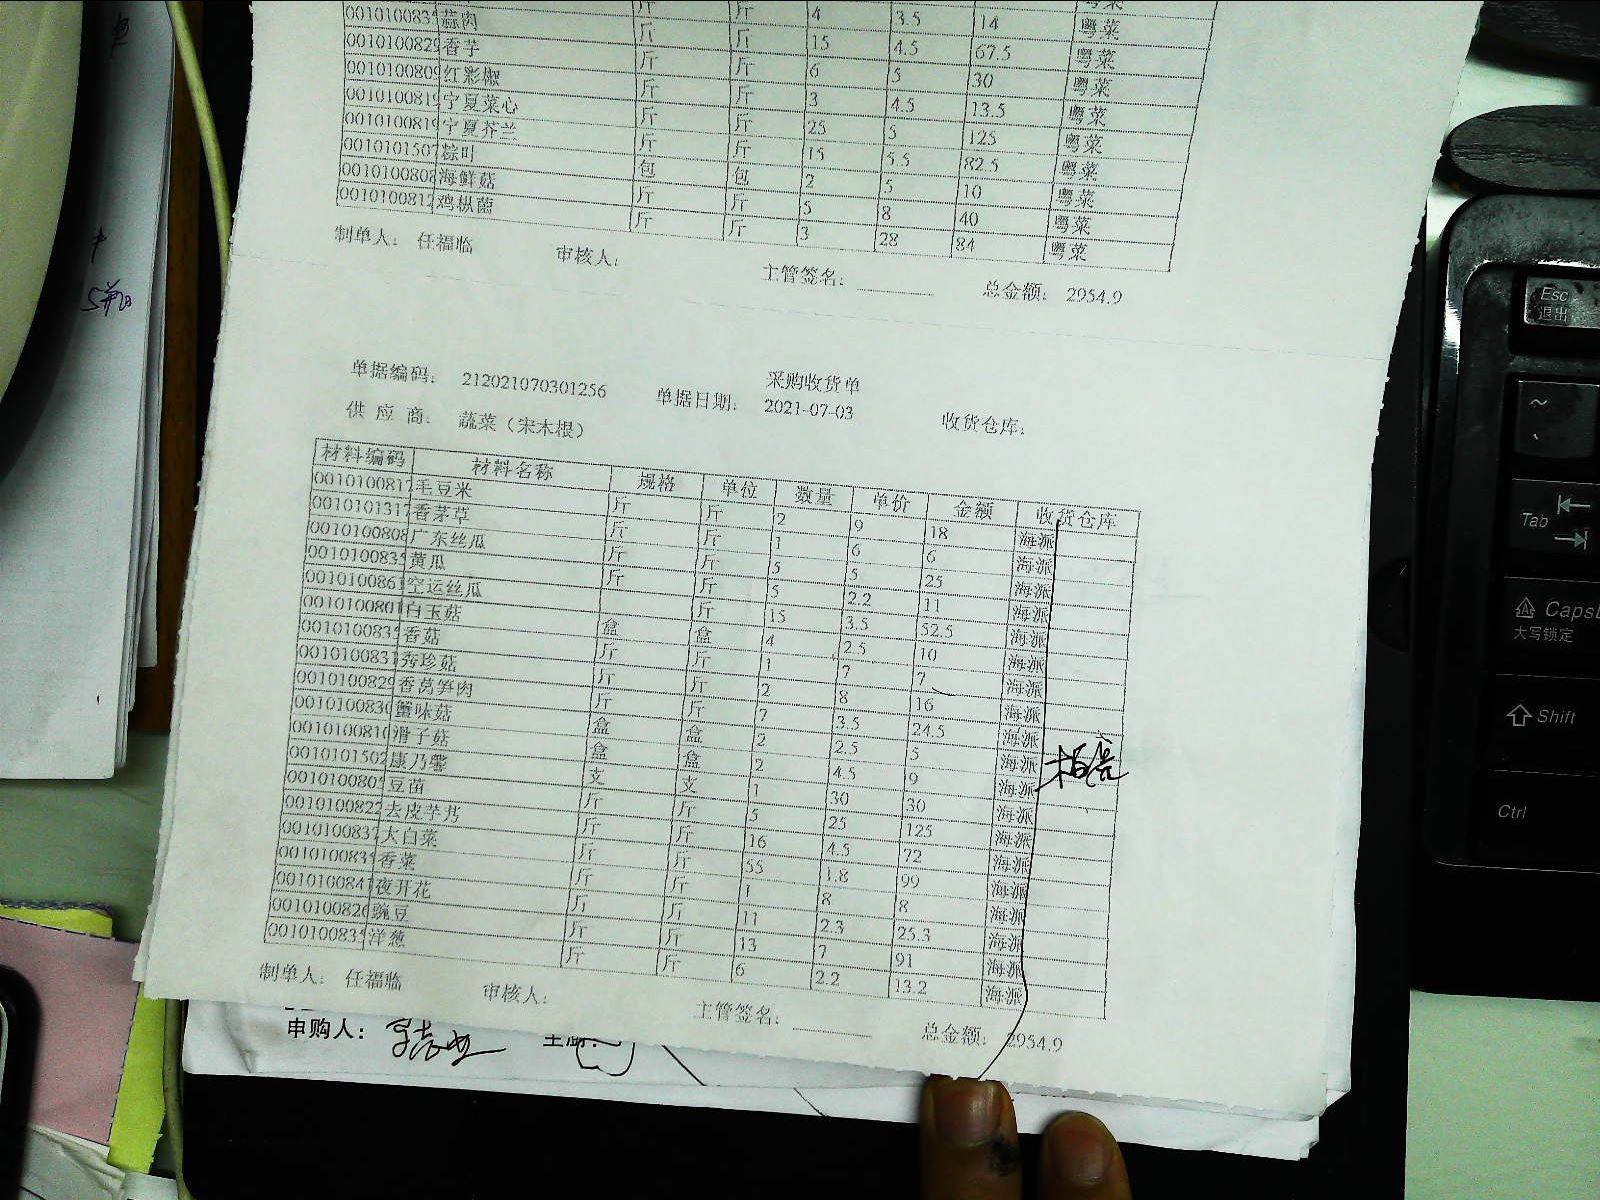 0010100835 蒜肉 斤 斤 4 3.5 14 粤菜
0010100829 香芋 斤 斤 15 4.5 67.5 粤菜
0010100809 红彩椒 斤 斤 6 5 30 粤菜
0010100819 宁夏菜心 斤 斤 3 4.5 13.5 粤菜
0010100819 宁夏芥兰 斤 斤 25 5 125 粤菜
0010101507 粽叶 斤 斤 15 5.5 82.5 粤菜
0010100808 海鲜菇 包 包 2 5 10 粤菜
0010100812 鸡枞菌 斤 斤 5 8 40 粤菜
斤 斤 3 28 84 粤菜
制单人: 任福临 审核人: 主管签名: 总金额: 2954.9
采购收货单
单据编码: 212021070301256 单据日期: 2021-07-03 收货仓库:
供 应 商: 蔬菜（宋木根）
材料编码 材料名称 规格 单位 数量 单价 金额 收货仓库
0010100812 毛豆米 斤 斤 2 9 18 海派
0010101317 香茅草 斤 斤 1 6 6 海派
0010100808 广东丝瓜 斤 斤 5 5 25 海派
0010100835 黄瓜 斤 斤 5 2.2 11 海派
0010100861 空运丝瓜 斤 15 3.5 52.5 海派
0010100801 白玉菇 盒 盒 4 2.5 10 海派
0010100835 香菇 斤 斤 1 7 7 海派
0010100831 秀珍菇 斤 斤 2 8 16 海派
0010100829 香莴笋肉 斤 斤 7 3.5 24.5 海派
0010100830 蟹味菇 盒 盒 2 2.5 5 海派
0010100810 滑子菇 盒 盒 2 4.5 9 海派
0010101502 康乃馨 支 支 1 30 30 海派
0010100805 豆苗 斤 斤 5 25 125 海派
0010100822 去皮芋艿 斤 斤 16 4.5 72 海派
0010100837 大白菜 斤 斤 55 1.8 99 海派
0010100835 香菜 斤 斤 1 8 8 海派
0010100841 夜开花 斤 斤 11 2.3 25.3 海派
0010100826 豌豆 斤 斤 13 7 91 海派
0010100835 洋葱 斤 斤 6 2.2 13.2 海派
制单人: 任福临 审核人: 主管签名: 总金额: 2954.9
申购人:
Esc
退出
~
Tab
Caps
大写锁定
Shift
Ctrl